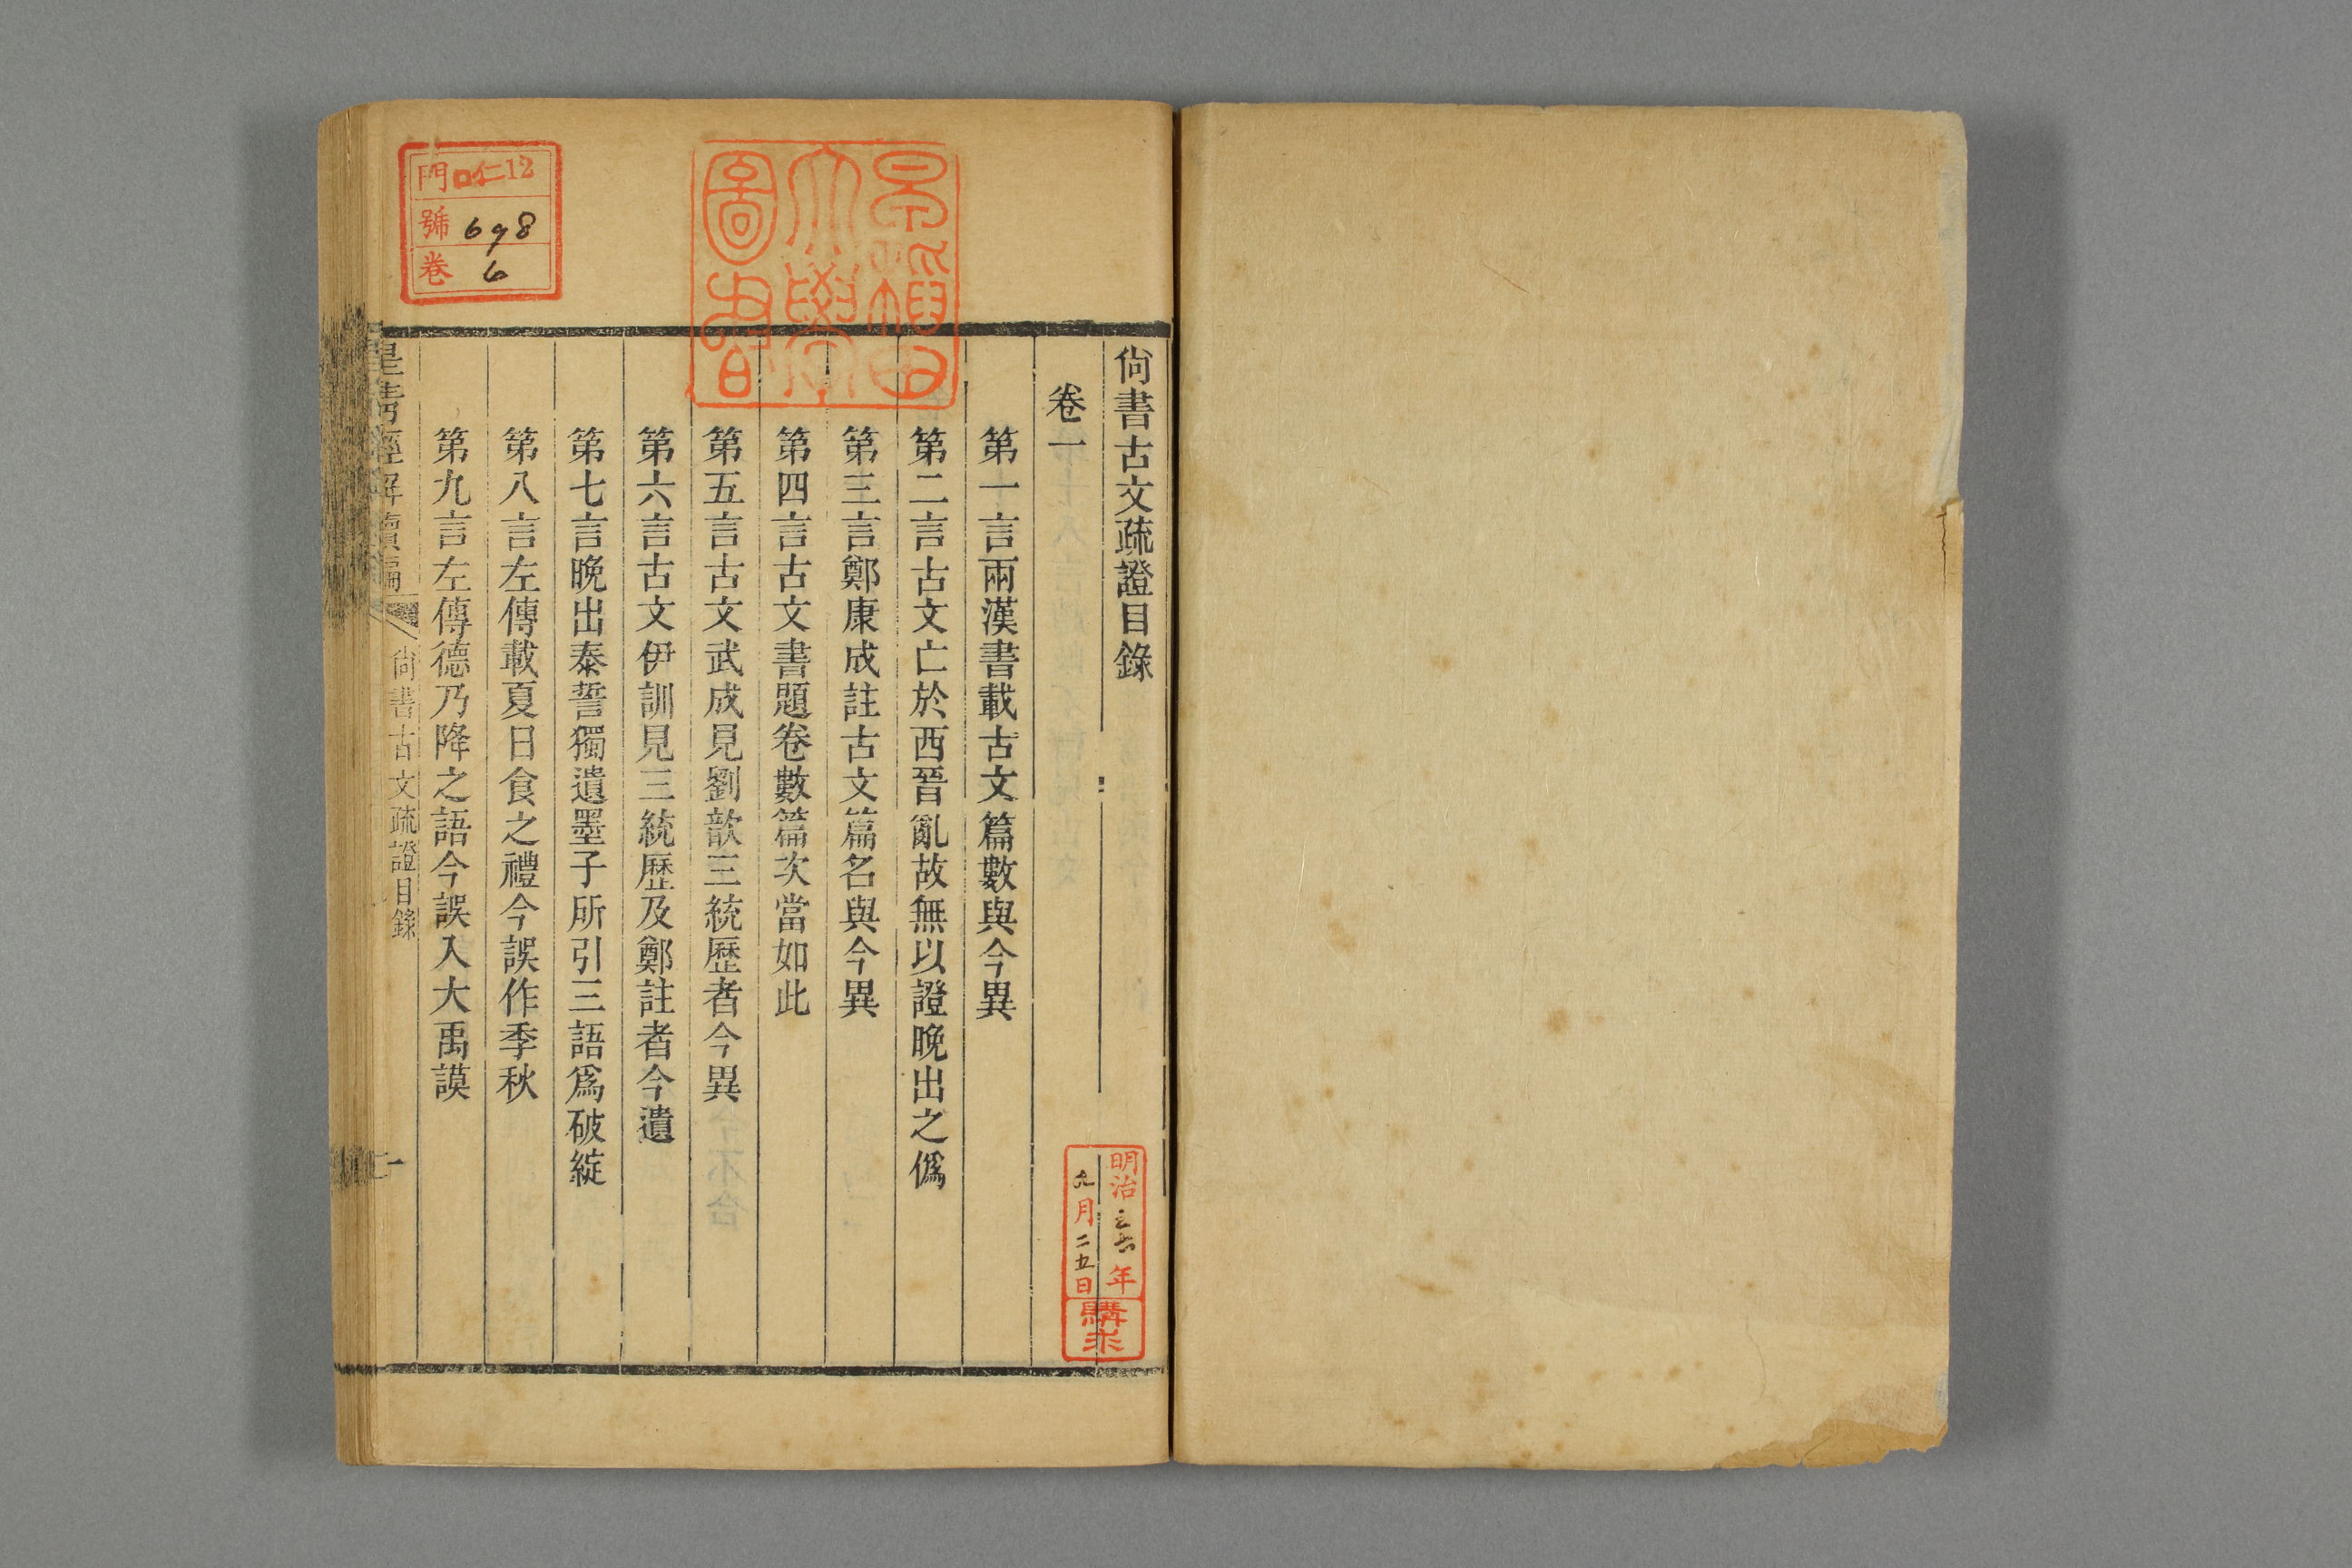 尙書古文疏證目錄
卷一
第一言兩漢書載古文篇數與今異
第二言古文亡於西晉亂故無以證晚出之僞
第三言鄭康成註古文篇名與今異
第四言古文書題卷數篇次當如此
第五言古文武成見劉歆三統歷者今異
第六言古文伊訓見三統歷及鄭註者今遺
第七言晚出泰誓獨遺墨子所引三語爲破綻
第八言左傳載夏日食之禮今誤作季秋
第九言左傳德乃降之語今誤入大禹謨
皇清經解續編
尙書古文疏證目錄
一
門口仁12
號698
卷6
早稻田
大學
圖書
明治三六年
九月二五日
購求